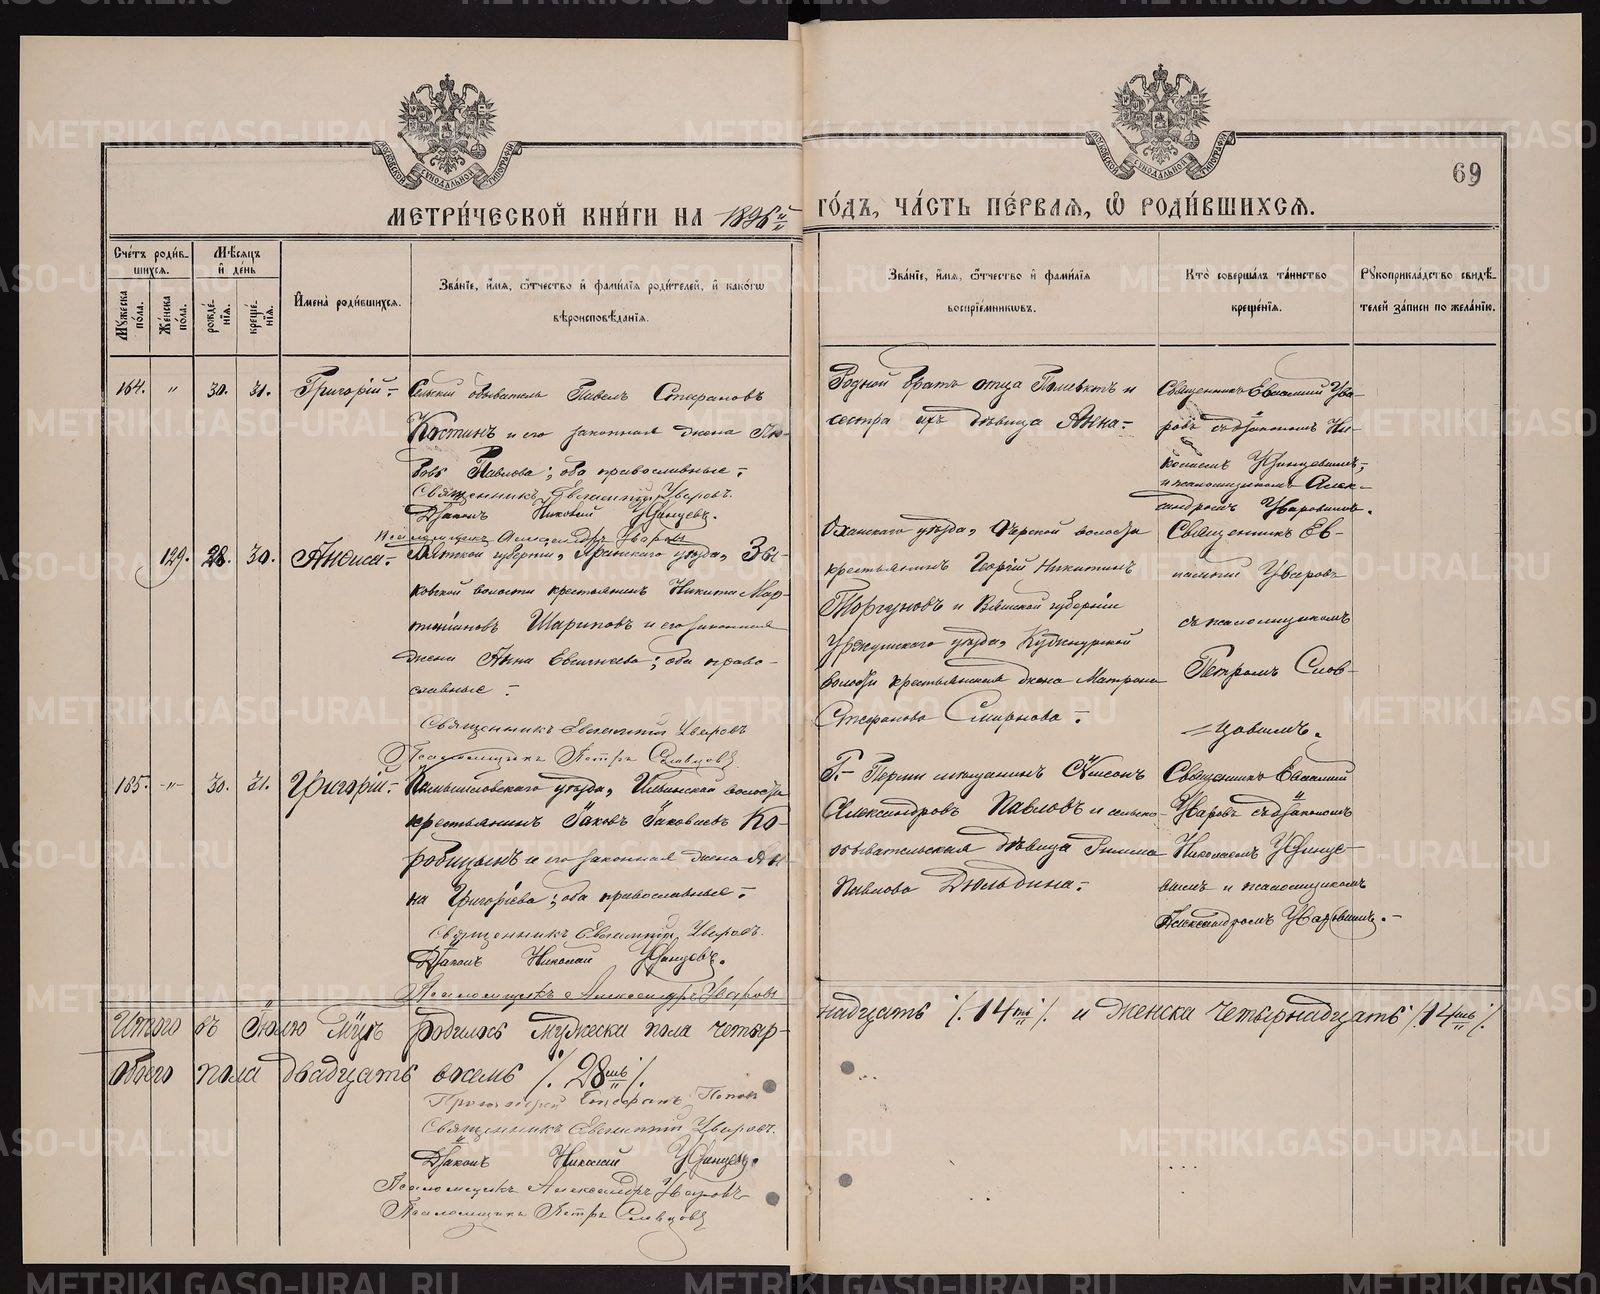 69
МЕТРИ́ЧЕСКОЙ КНИ́ГИ НА 1896 й ГО́ДЪ, ЧА́СТЬ ПЕ́РВАЯ, Ѡ РОДИ́ВШИХСЯ.
Сче́тъ роди́вшихся.
Му́жеска по́ла.
Же́нска по́ла.
Мѣ́сяцъ и де́нь
рожде́нія.
креще́нія.
Имена̀ роди́вшихся.
Зва́ніе, и́мя, ѻ́тчество и фами́лія роди́телей, и како́гѡ
вѣроисповѣ́данія.
Зва́ніе, и́мя, ѻ́тчество и фами́лія
воспріе́мниковъ.
Кто̀ соверша́лъ та́инство
креще́нія.
Рукоприкла́дство свидѣ́телей за́писи по жела́нію.
164. „ 30. 31. Григорій.-
Сельскій обыватель Павелъ
Костинъ и его законная жена Лю-
бовь Павлова; оба православные.-
Священникъ Евгеній Уваровъ.
Діаконъ Николай
Псаломщикъ Александръ Уваровъ
Родной братъ отца и
сестра ихъ дѣвица Анна.-
Священникъ Ува-
ровъ съ діакономъ Ни-
колаемъ
и псаломщикомъ Алек-
сандромъ Уваровымъ.
129. 28. 30. Анѳиса.-
Вятской губерніи, уѣзда,
ковской волости крестьянинъ Никита Мар-
Шариповъ и его законная
жена Анна Евсигнеева; оба право-
славные.-
Священникъ Евгеній Уваровъ
Псаломщикъ Петръ Словцовъ
Оханскаго уѣзда, волости
крестьянинъ Георгій Никитинъ
Торгуновъ и Вятской губерніи
Уржумскаго уѣзда,
волости крестьянская жена Матрона
Стефанова Смирнова.-
Священникъ Ев-
геній Уваровъ
съ псаломщикомъ
Петромъ Слов-
цовымъ.
165. -„- 30. 31. Григорій.-
Камышловскаго уѣзда, Ильинской волости
крестьянинъ Іаковъ Іаковлевъ Ко-
робицынъ и его законная жена Ан-
на Григоріева; оба православные.-
Священникъ Евгеній Уваровъ.
Діаконъ Николай
Псаломщикъ Александръ Уваровъ
Г.- Перми мѣщанинъ
Александровъ Павловъ и сельско-
обывательская дѣвица
Павлова Дюльдина.-
Священникъ Евгеній
Уваровъ съ діакономъ
Николаемъ
и псаломщикомъ
Александромъ Уваровымъ.-
Итого въ Іюлѣ м-цѣ родилось мужеска пола четыр-
надцать /.14ть/. и женска четырнадцать /.14ть/.
обоего пола двадцать восемь /.28мь/.
Протоіерей Стефанъ Поповъ
Священникъ Евгеній Уваровъ.
Діаконъ Николай
Псаломщикъ Александръ Уваровъ
Псаломщикъ Петръ Словцовъ
METRIKI.GASO-URAL.RU